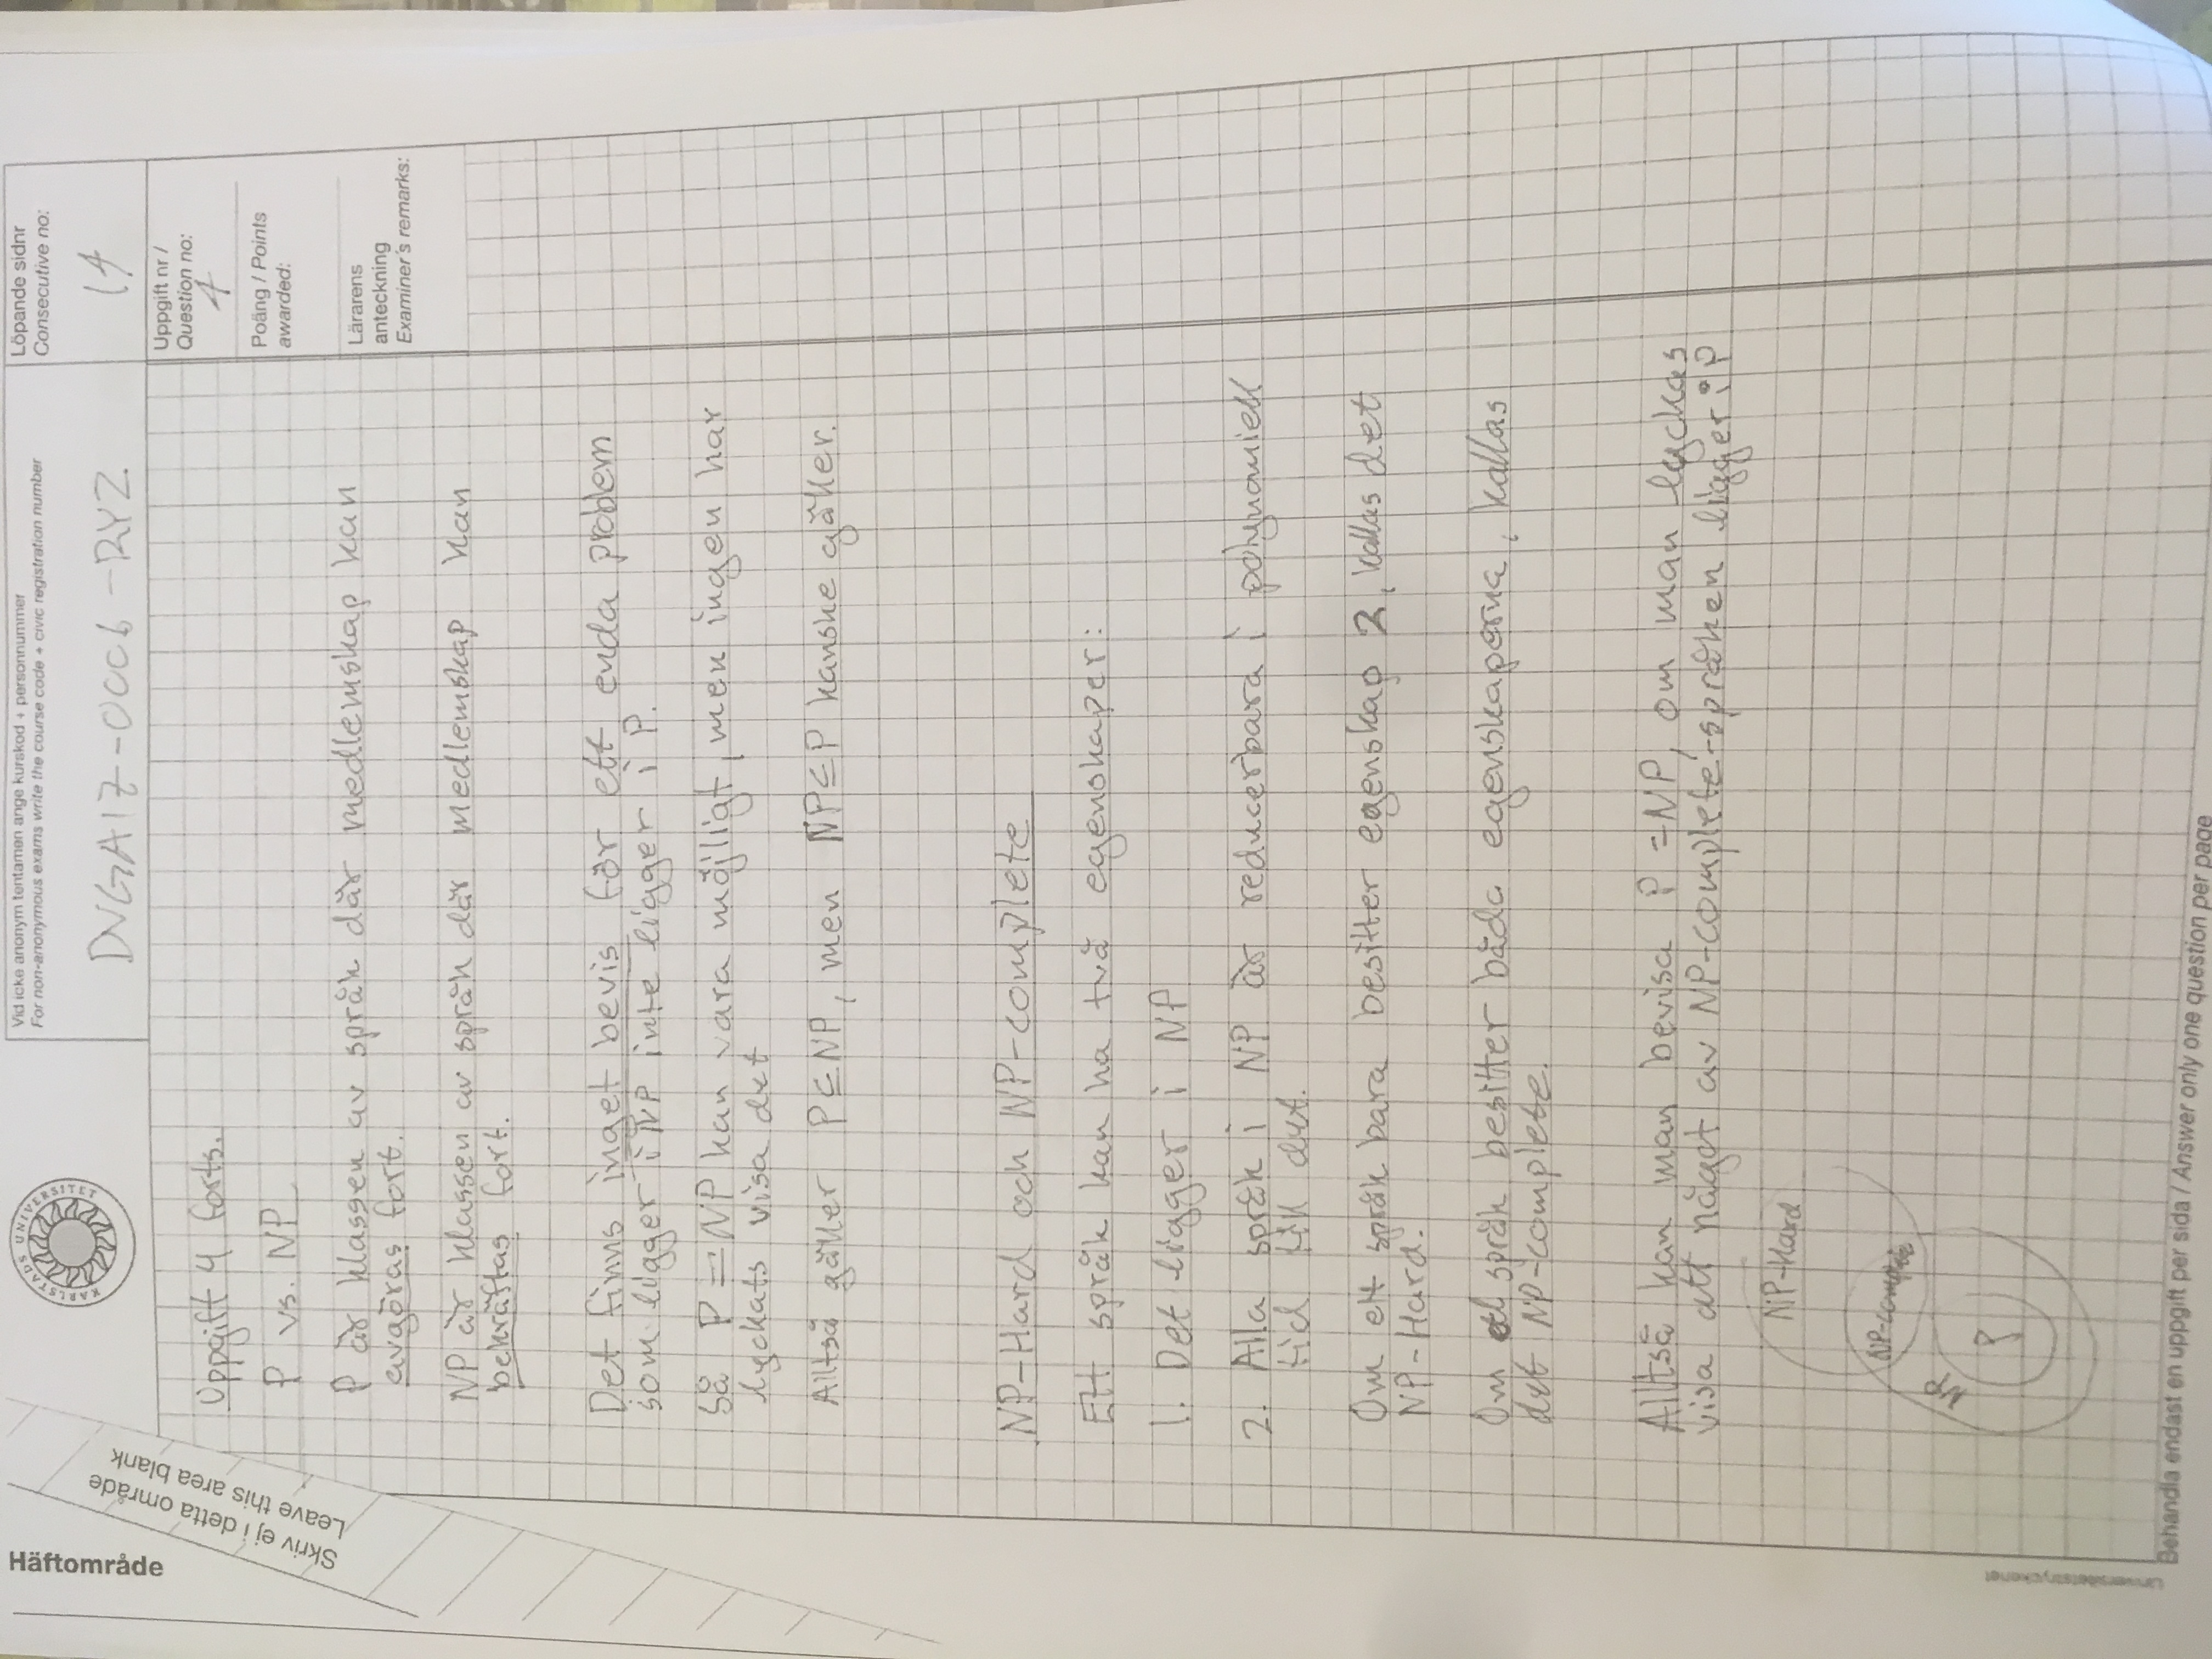 Häftområde
Skriv ej i detta område
Leave this area blank
KARLSTADS UNIVERSITET
Vid icke anonym tentamen ange kurskod + personnummer
For non-anonymous exams write the course code + civic registration number
DVGA17-0006-RYZ
Löpande sidnr
Consecutive no:
14
Uppgift nr /
Question no:
4
Poäng / Points
awarded:
Lärarens
anteckning
Examiner's remarks:
Uppgift 4 forts.
P vs. NP
P är klassen av språk där medlemskap kan
avgöras fort.
NP är klassen av språk där medlemskap kan
bekräftas fort.
Det finns inget bevis för ett enda problem
som ligger i NP inte ligger i P.
Så P = NP kan vara möjligt, men ingen har
lyckats visa det
Alltså gäller P⊆NP, men NP⊆P kanske gäller.
NP-Hard och NP-complete
Ett språk kan ha två egenskaper:
1. Det ligger i NP
2. Alla språk i NP är reducerbara i polynomiell
tid till det.
Om ett språk bara besitter egenskap 2, kallas det
NP-Hard.
Om ett språk besitter båda egenskaperna, kallas
det NP-complete.
Alltså kan man bevisa P = NP, om man lyckas
visa att något av NP-complete-språken ligger i P
NP-Hard
NP-complete
NP
P
Universitetstryckeriet
Behandla endast en uppgift per sida / Answer only one question per page